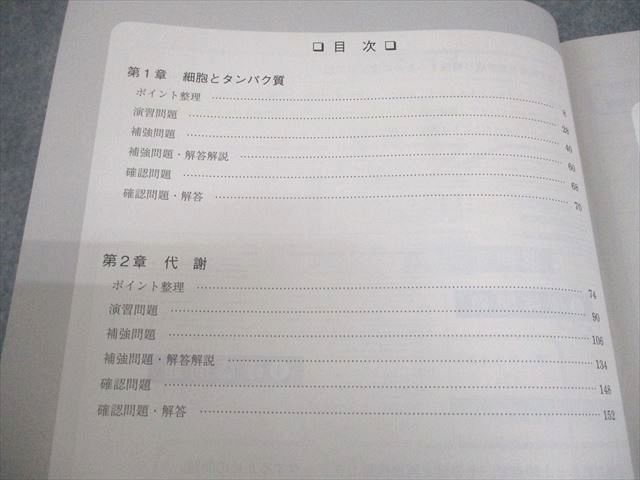 ❑ 目 次 ❑
第1章 細胞とタンパク質
ポイント整理 …… 8
演習問題 …… 28
補強問題 …… 40
補強問題・解答解説 …… 60
確認問題 …… 68
確認問題・解答 …… 70
第2章 代 謝
ポイント整理 …… 74
演習問題 …… 90
補強問題 …… 106
補強問題・解答解説 …… 134
確認問題 …… 148
確認問題・解答 …… 152